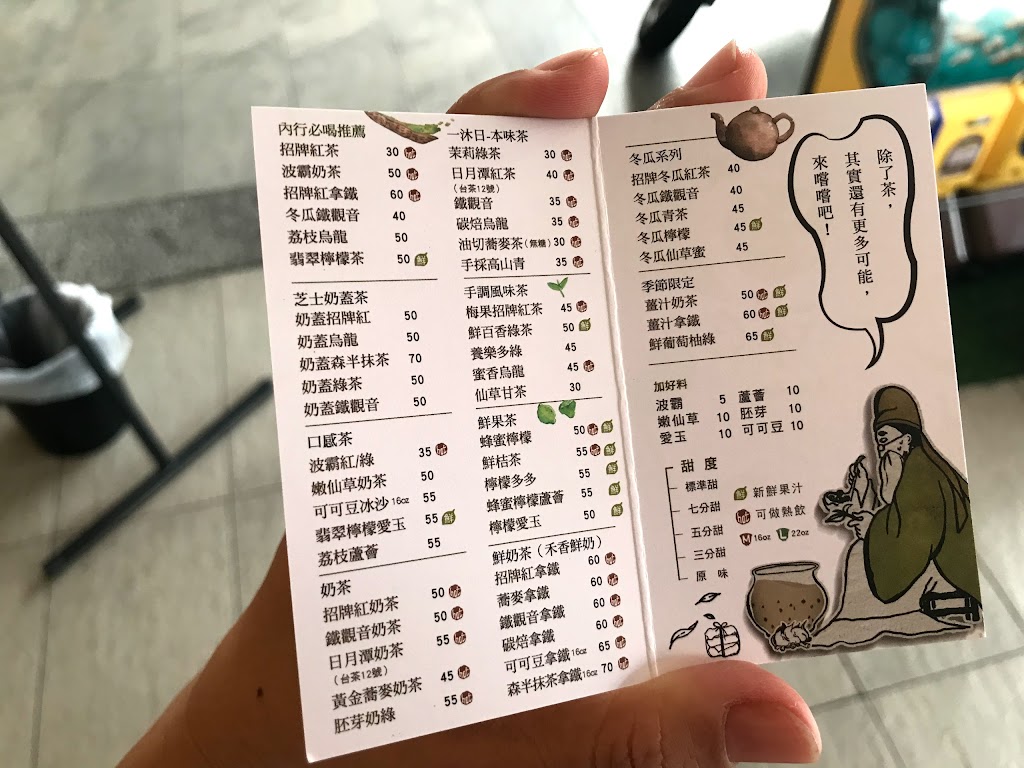 內行必喝推薦
招牌紅茶 30
波霸奶茶 50
招牌紅拿鐵 60
冬瓜鐵觀音 40
荔枝烏龍 50
翡翠檸檬茶 50 鮮
芝士奶蓋茶
奶蓋招牌紅 50
奶蓋烏龍 50
奶蓋森半抹茶 70
奶蓋綠茶 50
奶蓋鐵觀音 50
口感茶
波霸紅/綠 35
嫩仙草奶茶 50
可可豆冰沙16oz 55
翡翠檸檬愛玉 55 鮮
荔枝蘆薈 55
奶茶
招牌紅奶茶 50
鐵觀音奶茶 50
日月潭奶茶 55
(台茶12號)
黃金蕎麥奶茶 45
胚芽奶綠 55
一沐日-本味茶
茉莉綠茶 30
日月潭紅茶 40
(台茶12號)
鐵觀音 35
碳焙烏龍 35
油切蕎麥茶(無糖) 30
手採高山青 35
手調風味茶
梅果招牌紅茶 45
鮮百香綠茶 50 鮮
養樂多綠 45
蜜香烏龍 45
仙草甘茶 30
鮮果茶
蜂蜜檸檬 50 鮮
鮮桔茶 55 鮮
檸檬多多 55 鮮
蜂蜜檸檬蘆薈 55 鮮
檸檬愛玉 50 鮮
鮮奶茶（禾香鮮奶）
招牌紅拿鐵 60
蕎麥拿鐵 60
鐵觀音拿鐵 60
碳焙拿鐵 60
可可豆拿鐵16oz 65
森半抹茶拿鐵16oz 70
冬瓜系列
招牌冬瓜紅茶 40
冬瓜鐵觀音 40
冬瓜青茶 45
冬瓜檸檬 45 鮮
冬瓜仙草蜜 45
季節限定
薑汁奶茶 50 鮮
薑汁拿鐵 60 鮮
鮮葡萄柚綠 65 鮮
加好料
波霸 5 蘆薈 10
嫩仙草 10 胚芽 10
愛玉 10 可可豆 10
甜度
標準甜
七分甜
五分甜
三分甜
原味
鮮 新鮮果汁
可做熱飲
M 16oz L 22oz
除了茶，
其實還有更多可能，
來嚐嚐吧！